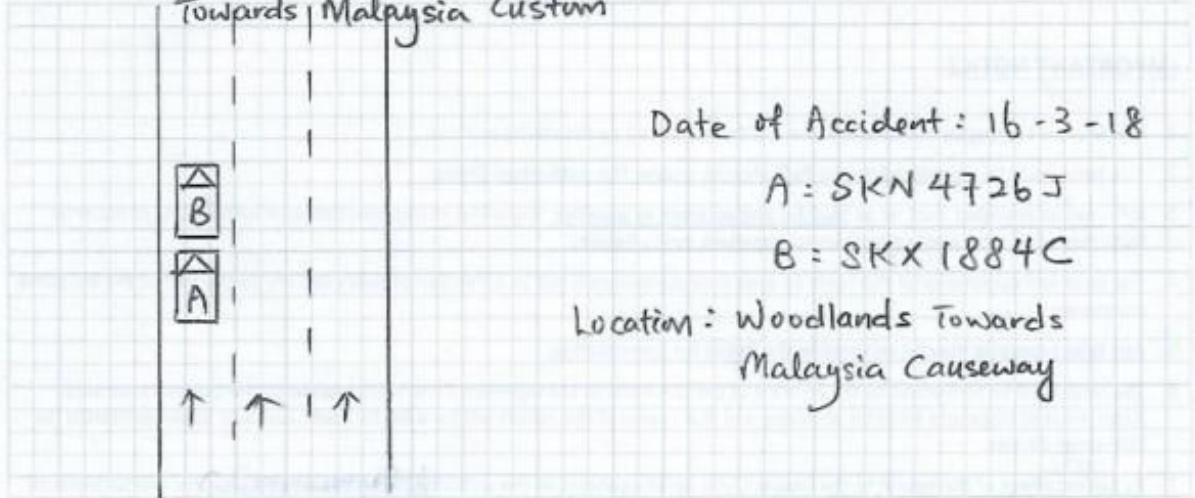 Towards Malaysia Custom
Date of Accident: 16-3-18
A: SKN 4726J
B: SKX 1884C
Location: Woodlands Towards
Malaysia Causeway
B
A